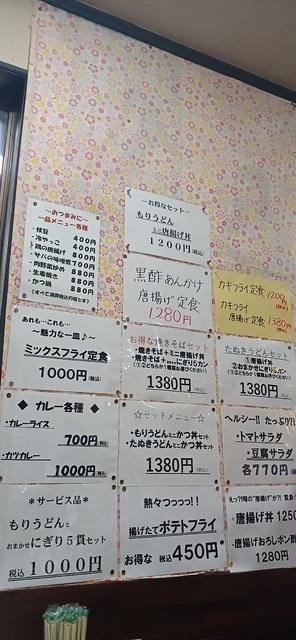 ～おつまみに～
一品メニュー各種
・枝豆 400円
・冷やっこ 400円
・鶏の唐揚げ 800円
・サバの味噌煮 700円
・肉野菜炒め 880円
・生姜焼き 880円
・かつ鍋 880円
～お得なセット～
もりうどん
ミニ唐揚げ丼
1200円(税込)
黒酢あんかけ
唐揚げ定食
1280円
カキフライ定食
1200円
カキフライ
唐揚げ定食 1380円
あれも…これも…
～魅力な一皿♪～
ミックスフライ定食
1000円(税込)
お得な焼きそばセット
・焼きそば＋ミニ唐揚げ丼
1380円
たぬきうどんセット
①唐揚げ丼
②おまかせにぎり5カン
1380円
◆ カレー各種 ◆
・カレーライス
700円(税込)
・カツカレー
1000円(税込)
☆セットメニュー☆
・もりうどんミニかつ丼セット
・たぬきうどんミニかつ丼セット
1380円
ヘルシー!! たっぷり
・トマトサラダ
・豆腐サラダ
各770円
＊サービス品＊
もりうどんと
おまかせにぎり５貫セット
税込1000円
熱々つっっつ!!
揚げたてポテトフライ
お得な 税込450円
えっ?!噂の"唐揚げ"が?!
・唐揚げ丼
・唐揚げおろしポン酢
1280円